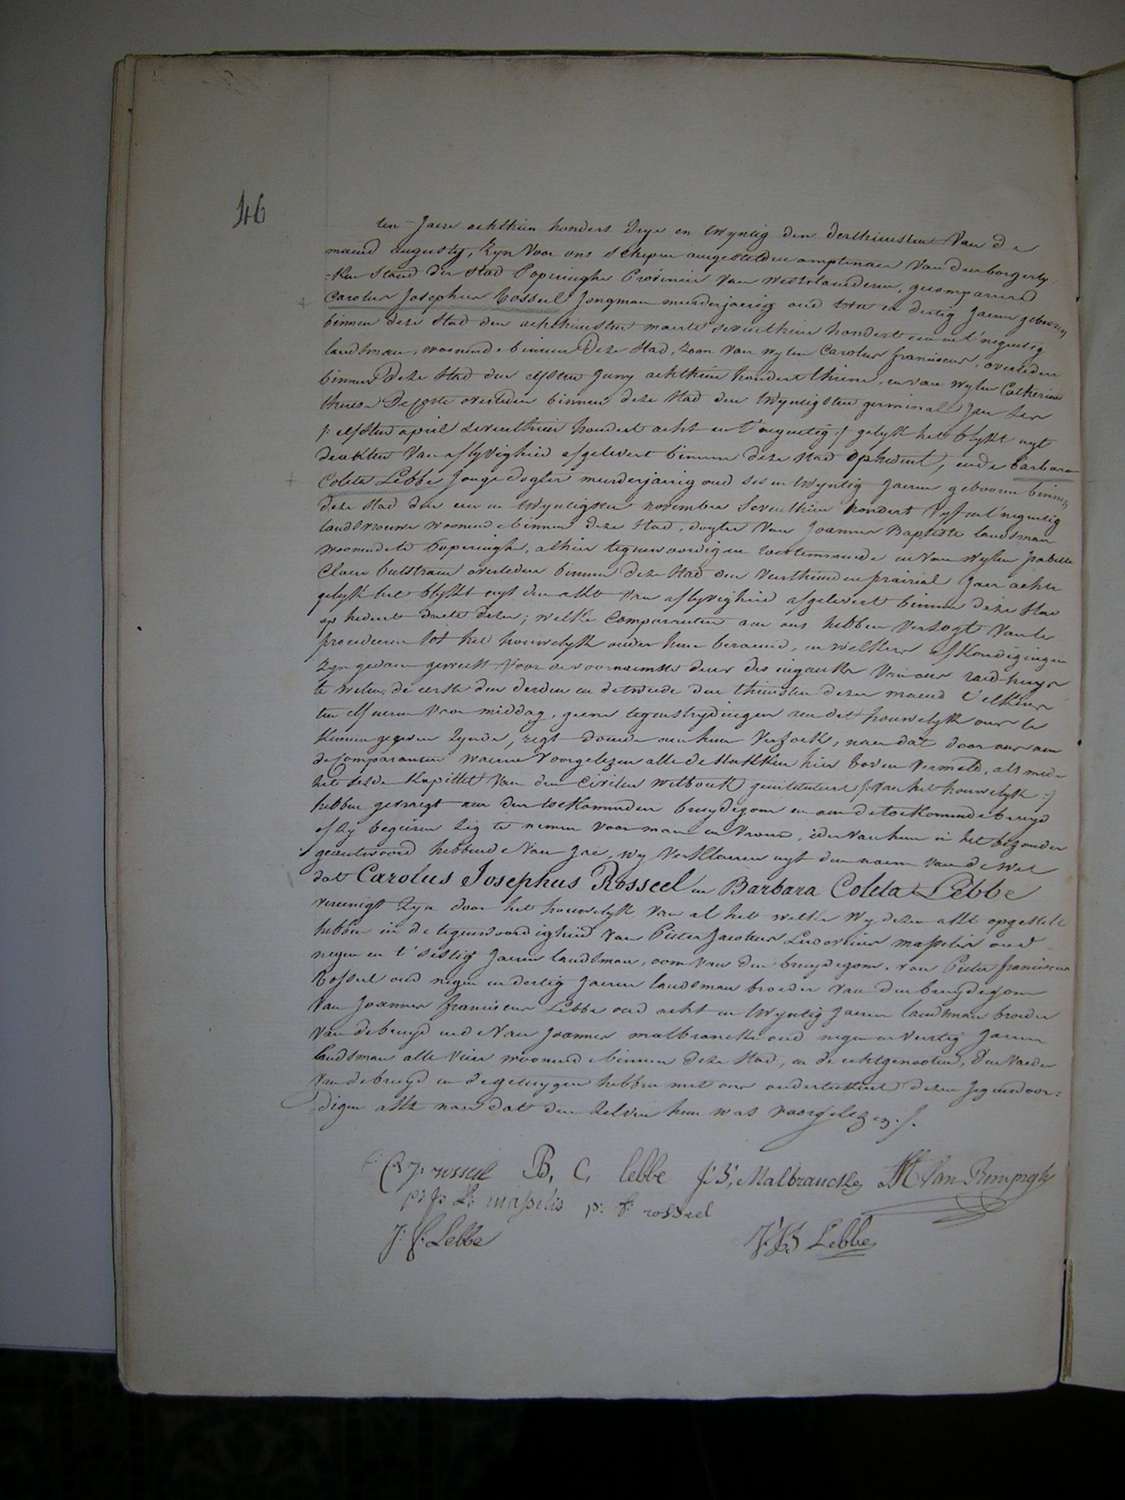 46
ten Jaere achthien hondert drye en twyntig den derthiensten van de
maend augusty, zyn voor ons schepen aengestelden amptenaer van den borgerly-
-ken stand der stad Poperinghe Provincie van westvlaenderen, gecompareerd
Carolus Josephus Rosseel Jongman meerderjaerig oud een en dertig Jaeren geboren
binnen deze stad den achthiensten maerte seventhien hondert een en t'negentig
landsman, woonende binnen deze stad, zoon van wylen Carolus franciscus, overleden
binnen deze stad den elfsten Juny achthien hondert thiene, en van wylen Catherina
theresa Decorte overleden binnen deze stad den twyntigsten germinal Jaer ses
/: elfsten april seventhien hondert acht en t'negentig :/ gelyk het blykt uyt
de akten van aflyvigheid afgelevert binnen deze stad op hedent, ende barbara
Coleta Lebbe Jonge dogter meerderjaerig oud ses en twyntig Jaeren geboren binnen
deze stad den een en twyntigsten november seventhien hondert vyf en t'negentig
landsvrouwe woonende binnen deze stad, dogter van Joannes Baptiste landsman
woonende te Poperinghe, alhier tegenwoordig en toestemmende en van wylen Isabelle
Clara overleden binnen deze stad den veerthienden prairial Jaer achte
gelyk het blykt uyt den akt van aflyvigheid afgelevert binnen deze stad
op hedent; welke Comparanten aen ons hebben versogt van te
procederen tot het houwelyk onder hun beraemd, en welkers afkondigingen
zyn gedaen geweest voor de voornaemste deur des ingank van ons raed-huys
te weten, de eerste den derden en de tweede den thiensten dezer maend t'elkens
ten elf ueren voor middag, geene tegenstrydingen aen dat houwelyk ons te
kennen gegeven zynde, regt doende aen hun versoek, naer dat door ons aen
de Comparanten waeren voorgelezen alle de stukken hier boven vermeld, als mede
het zesde Kapittel van den Civilen wetboek geintituleert /: van het houwelyk :/
hebben gevraegt aen den toekomenden bruydegom en aen de toekomende bruyd
of zy begeiren zig te nemen voor man en vrouw, ider van hun in het bezonder
geantwoord hebbende van Jae, wy verklaeren uyt den naem van de wet
dat Carolus Josephus Rosseel en Barbara Coleta Lebbe
vereenigt zyn door het houwelyk van al het welke wy dezen akt opgestelt
hebben in de tegenwoordigheid van Pieter Jacobus Ludovicus masselis oud
negen en t'sestig Jaeren landsman, oom van den bruydegom, van Pieter franciscus
Rosseel oud negen en dertig Jaeren landsman broeder van den bruydegom
van Joannes franciscus Lebbe oud acht en twyntig Jaeren landsman broeder
van de bruyd ende van Joannes malbrancke oud negen en veertig Jaeren
landsman alle vier woonende binnen deze stad, en de echtgenooten, den vader
van de bruyd en de getuygen hebben met ons onderteekent dezen tegenwoor-
digen akt naer dat den zelven hun was voorgelezen ./.
C J rosseel B, C, lebbe J: B, Malbrancke Van Renynghe
p: J: L: masselis p: f: rosseel
J: f: Lebbe J: B Lebbe